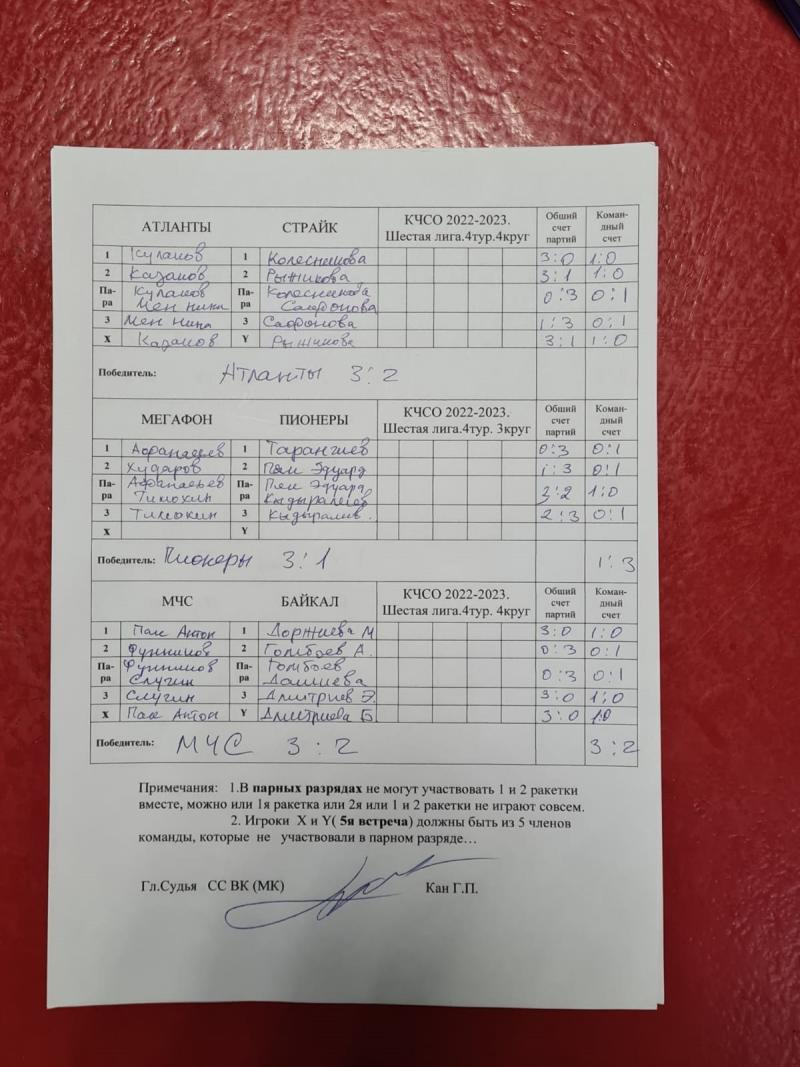 АТЛАНТЫ СТРАЙК КЧСО 2022-2023. Шестая лига.4тур.4круг Общий счет партий Коман-дный счет
1 Кулаков 1 Колесникова 3:0 1:0
2 Казаков 2 Рыжикова 3:1 1:0
Па-ра Кулаков Мен Нина Па-ра Колесникова Сафонова 0:3 0:1
3 Мен Нина 3 Сафонова 1:3 0:1
X Казаков Y Рыжикова 3:1 1:0
Победитель: Атланты 3:2
МЕГАФОН ПИОНЕРЫ КЧСО 2022-2023. Шестая лига.4тур. 3круг Общий счет партий Коман-дный счет
1 Афанасьев 1 0:3 0:1
2 Хударов 2 Пак Эдуард 1:3 0:1
Па-ра Афанасьев Тимохин Па-ра Пак Эдуард 3:2 1:0
3 Тимохин 3 2:3 0:1
X Y
Победитель: Пионеры 3:1 1:3
МЧС БАЙКАЛ КЧСО 2022-2023. Шестая лига.4тур. 4круг Общий счет партий Коман-дный счет
1 Пак Антон 1 Доржиева М 3:0 1:0
2 2 Гомбоев А. 0:3 0:1
Па-ра Слугин Па-ра Гомбоев Дашиева 0:3 0:1
3 Слугин 3 Дмитриев Э. 3:0 1:0
X Пак Антон Y Дмитриева Б. 3:0 1:0
Победитель: МЧС 3:2 3:2
Примечания: 1.В парных разрядах не могут участвовать 1 и 2 ракетки
вместе, можно или 1я ракетка или 2я или 1 и 2 ракетки не играют совсем.
2. Игроки X и Y( 5я встреча) должны быть из 5 членов
команды, которые не участвовали в парном разряде…
Гл.Судья СС ВК (МК) Кан Г.П.